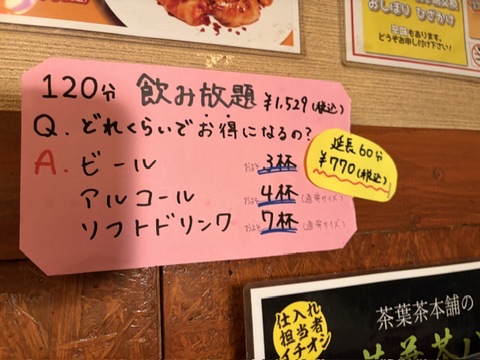 おしぼり ひざかけ
早瞇もあります。
どうぞお申し付け下さい!
120分 飲み放題 ¥1,529(税込)
Q. どれくらいでお得になるの?
A. ビール およそ 3杯
アルコール およそ 4杯 (通常サイズ)
ソフトドリンク およそ 7杯 (通常サイズ)
延長60分
¥770(税込)
仕入れ
担当者
イチオシ
茶葉茶本舗の